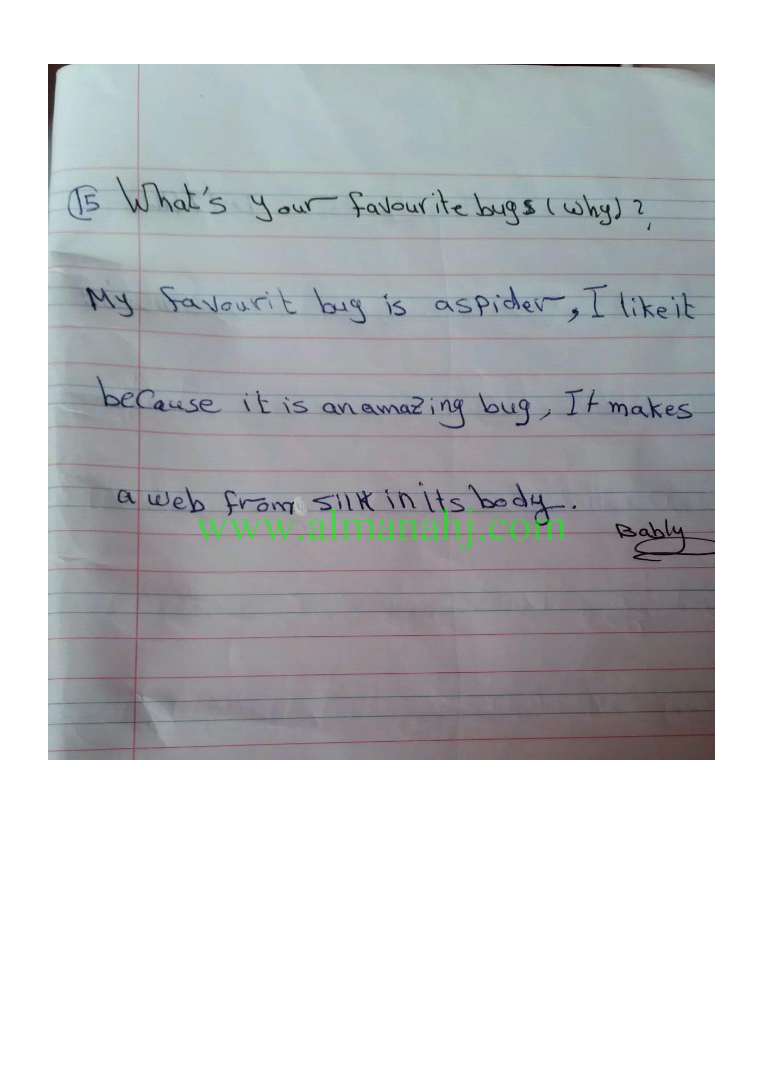 15 What's your favourite bugs (why)?
My favourit bug is aspider, I like it
because it is an amazing bug, It makes
a web from silk in its body.
www.almanahj.com
Bably